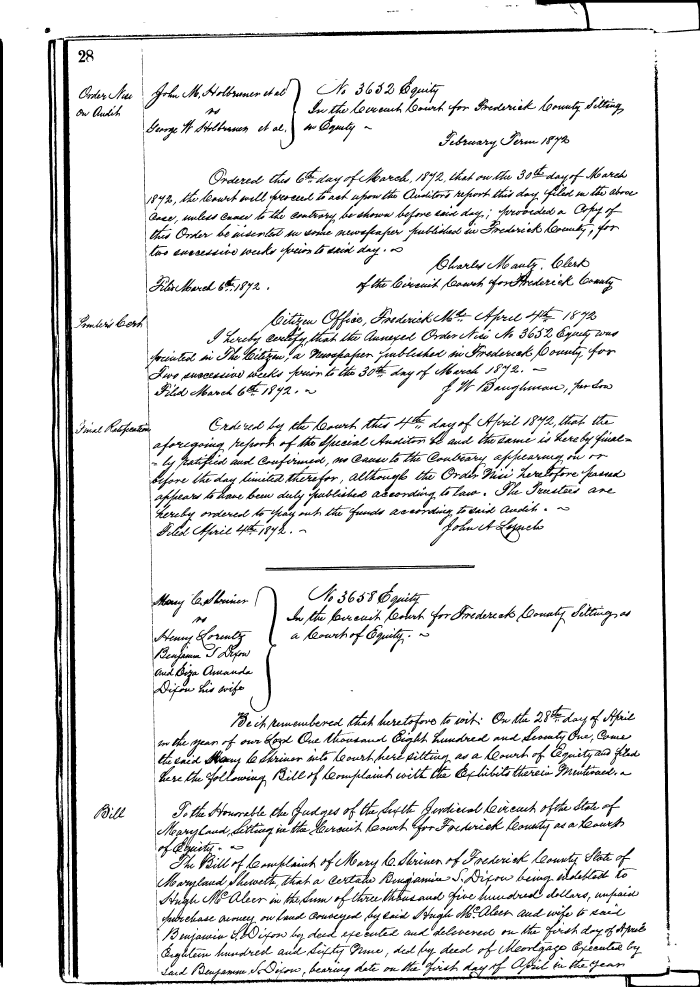 28
Order Nisi
on Audit
John M. Holbruner et al
vs
George W Holbruner et al.
No 3652 Equity
In the Circuit Court for Frederick County Sitting
in Equity ~
February Term 1872
Ordered this 6th day of March, 1872, that on the 30th day of March
1872, the Court will proceed to act upon the Auditors report this day filed in the above
case, unless cause to the contrary be shown before said day; provided a Copy of
this Order be inserted in some newspaper published in Frederick County, for
two successive weeks prior to said day. ~
Charles Mantz, Clerk
Filed March 6th 1872.
of the Circuit Court for Frederick County
Printer's Cert
Citizen Office, Frederick Md. April 4th 1872
I hereby certify, that the Annexed Order Nisi No 3652 Equity was
printed in The Citizen, a Newspaper published in Frederick County, for
Two successive weeks prior to the 30th day of March 1872. ~
Filed March 6th 1872. ~
J W Baughman, per Son
Final Ratification
Ordered by the Court this 4th day of April 1872, that the
aforegoing report of the Special Auditor be and the same is hereby final=
=ly ratified and confirmed, no cause to the Contrary appearing on or
before the day limited therefor, although the Order Nisi heretofore passed
appears to have been duly published according to law. The Trustees are
hereby ordered to pay out the funds according to said Audit. ~
Filed April 4th 1872. ~
John A Lynch
Mary C. Shriner
vs
Henry Lorentz
Benjamin S Dixon
and Eliza Amanda
Dixon his wife
No 3658 Equity
In the Circuit Court for Frederick County Sitting as
a Court of Equity. ~
Be it remembered that heretofore to wit: On the 28th day of April
in the year of our Lord One thousand Eight hundred and Seventy One, Came
the said Mary C Shriner into Court here sitting as a Court of Equity and filed
here the following Bill of Complaint with the Exhibits therein Mentioned. ~
Bill
To the Honorable the Judges of the Sixth Judicial Circuit of the State of
Maryland, Sitting in the Circuit Court for Frederick County as a Court
of Equity. ~
The Bill of Complaint of Mary C. Shriner of Frederick County State of
Maryland Sheweth, that a certain Benjamin S. Dixon being indebted to
Hugh McAleer in the Sum of three thousand five hundred dollars, unpaid
purchase money, on land conveyed by said Hugh McAleer and wife to said
Benjamin S. Dixon by deed executed and delivered on the first day of April
Eighteen hundred and Sixty Nine, did by deed of Mortgage Executed by
said Benjamin S. Dixon, bearing date on the first day of April in the year